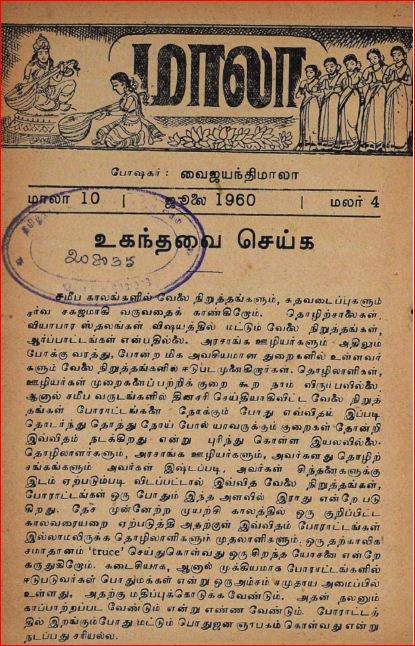 மாலா
போஷகர் : வைஜயந்திமாலா
மாலா 10 | ஜூலை 1960 | மலர் 4
உகந்தவை செய்க
சமீப காலங்களில் வேலை நிறுத்தங்களும், கதவடைப்புகளும்
சர்வ சகஜமாகி வருவதைக் காண்கிறோம். தொழிற்சாலைகள்.
வியாபார ஸ்தலங்கள் விஷயத்தில் மட்டும் வேலை நிறுத்தங்கள்,
ஆர்ப்பாட்டங்கள் என்பதில்லை. அரசாங்க ஊழியர்களும் அதிலும்
போக்கு வரத்து, போன்ற மிக அவசியமான துறைகளில் உள்ளவர்
களும் வேலை நிறுத்தங்களில் ஈடுபட முனைகிறார்கள். தொழிலாளிகள்,
ஊழியர்கள் முறைகளைப்பற்றிக் குறை கூற நாம் விரும்பவில்லை.
ஆனால் சமீப வருடங்களில் தினசரி செய்தியாகிவிட்ட வேலை நிறுத்
தங்கள் போராட்டங்களை நோக்கும் போது எவ்விதம் இப்படி
தொடர்ந்து தொத்து நோய் போல் யாவருக்கும் குறைகள் தோன்றி
இவ்விதம் நடக்கிறது என்று புரிந்து கொள்ள இயலவில்லை.
தொழிலாளர்களும், அரசாங்க ஊழியர்களும், அவர்களனது தொழிற்
சங்கங்களும் அவர்கள் இஷ்டப்படி, அவர்கள் சிந்தனைகளுக்கு
இடம் ஏற்படும்படி விடப்பட்டால் இவ்வித வேலை நிறுத்தங்கள்,
போராட்டங்கள் ஒரு போதும் இந்த அளவில் இராது என்றே படு
கிறது. தேச முன்னேற்ற முயற்சி காலத்தில் ஒரு குறிப்பிட்ட
காலவரையறை ஏற்படுத்தி அதற்குள் இவ்விதம் போராட்டங்கள்
இல்லாமலிருக்க தொழிலாளிகளும் முதலாளிகளும் ஒரு தற்காலிக
சமாதானம் 'truce' செய்துகொள்வது ஒரு சிறந்த யோசனை என்றே
கருதுகிறோம். கடைசியாக, ஆனால் முக்கியமாக போராட்டங்களில்
ஈடுபடுவர்கள் பொதுமக்கள் என்று ஒரு அம்சம் சமுதாய அமைப்பில்
உள்ளது, அதற்கு மதிப்புக்கொடுக்க வேண்டும். அதன் நலனும்
காப்பாற்றப்பட வேண்டும் என்று எண்ண வேண்டும். போராட்டத்
தில் இறங்கும்போது மட்டும் பொதுஜன ஞாபகம் கொள்வது என்று
நடப்பது சரியல்ல.